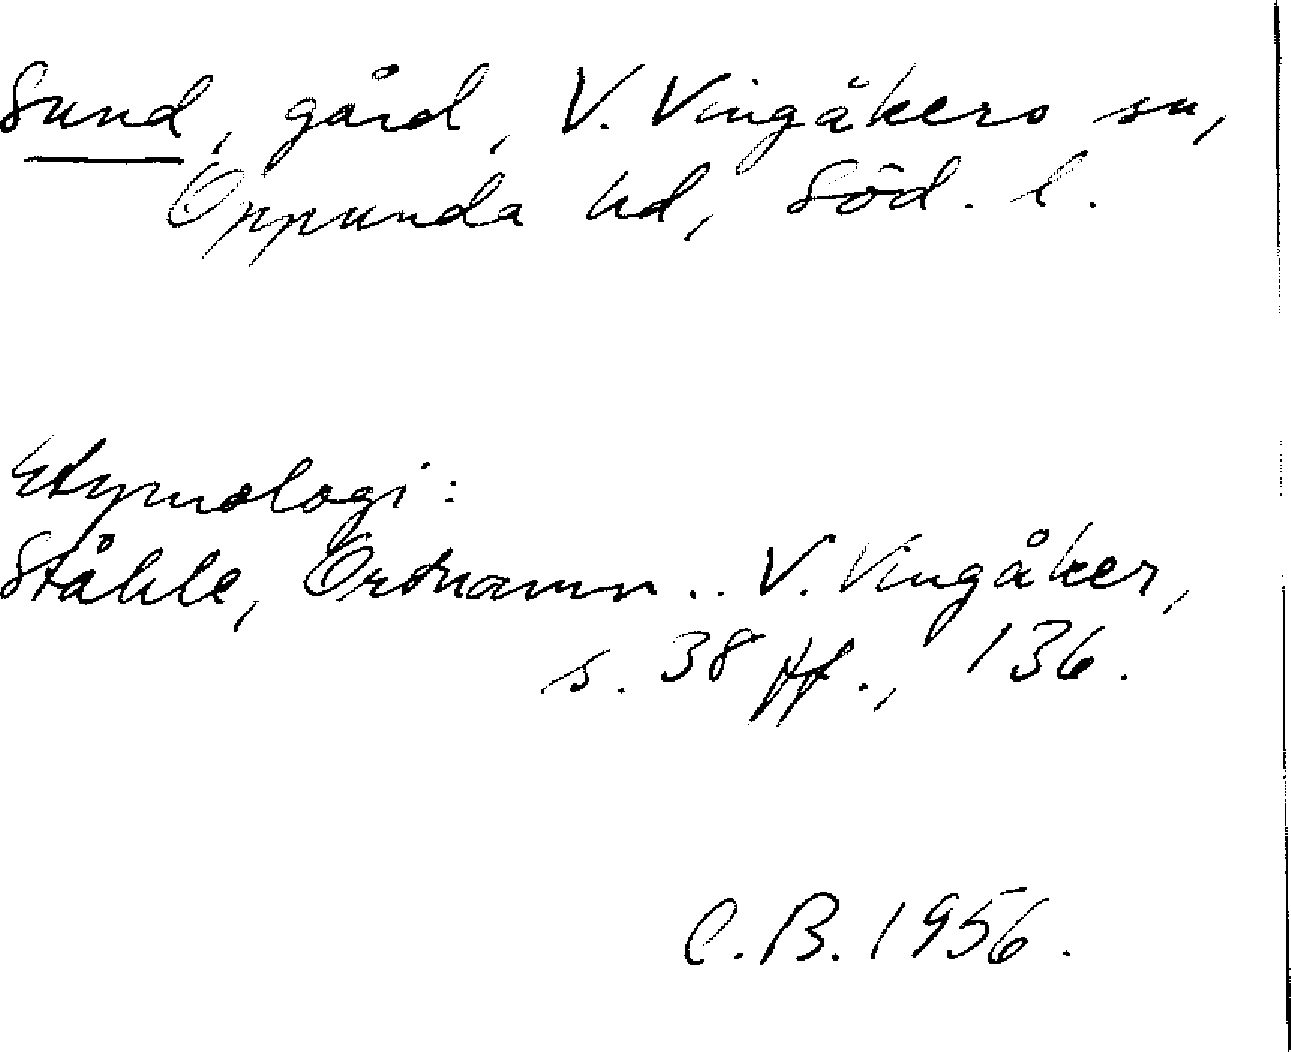 Sund, gård, V. Vingåkers sn,
Oppunda hd, Söd. l.
Etymologi:
Ståhle, Ortnamn .. V. Vingåker,
s. 38 ff., 136.
C.B. 1956.